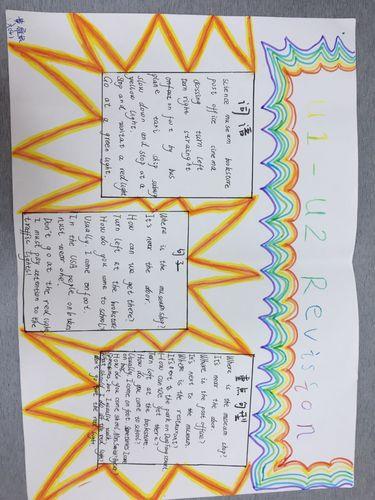 U1-U2 Revision
词语
science museum bookstore
post office cinema
crossing turn left
turn right straight
on foot by bus
plane taxi ship subway
slow down and stop at a
yellow light
Stop and wait at a red light
Go at a green light
句子
Where is the museum shop?
It's near the door.
How can we get there?
Turn left at the bookstore
How do you come to school?
Usually, I come on foot.
In the USA people on bikes
must wear one.
Don't go at the red light
I must pay attention to the
traffic lights!
重点句型
Where is the museum shop?
It's near the door
Where is the post office?
It's next to the museum.
Where is the restaurant?
It's next to the park on Dongfang street
How can we get there?
Turn left at the bookstore
How do you come to school?
Usually, I come on foot. Sometimes I come